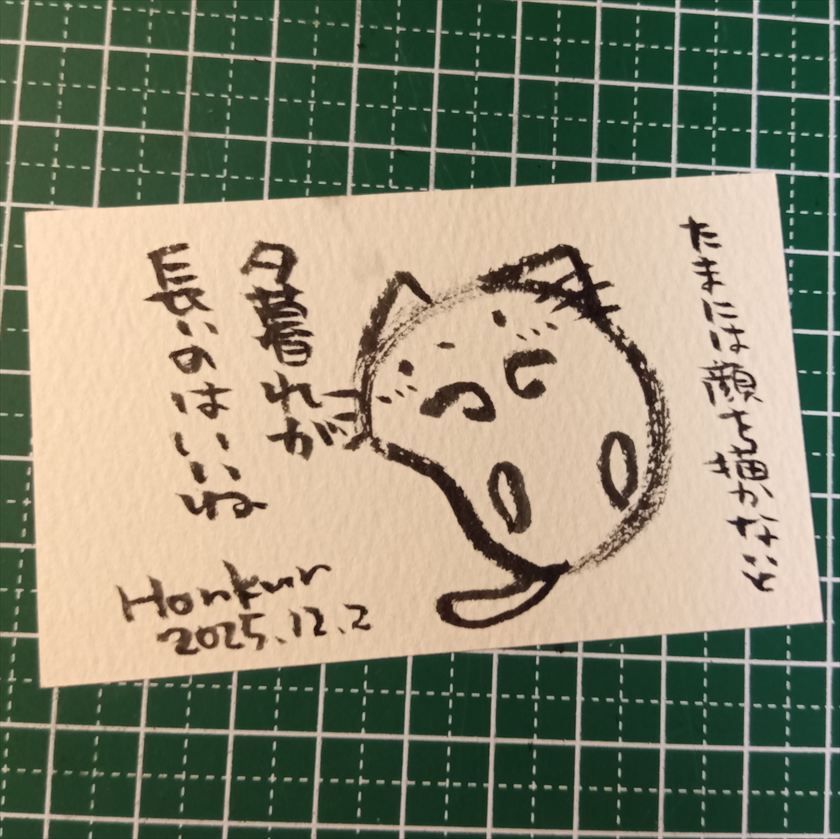 たまには顔を描かないと
夕暮れが
長いのはいいね
Honkur
2025.12.2